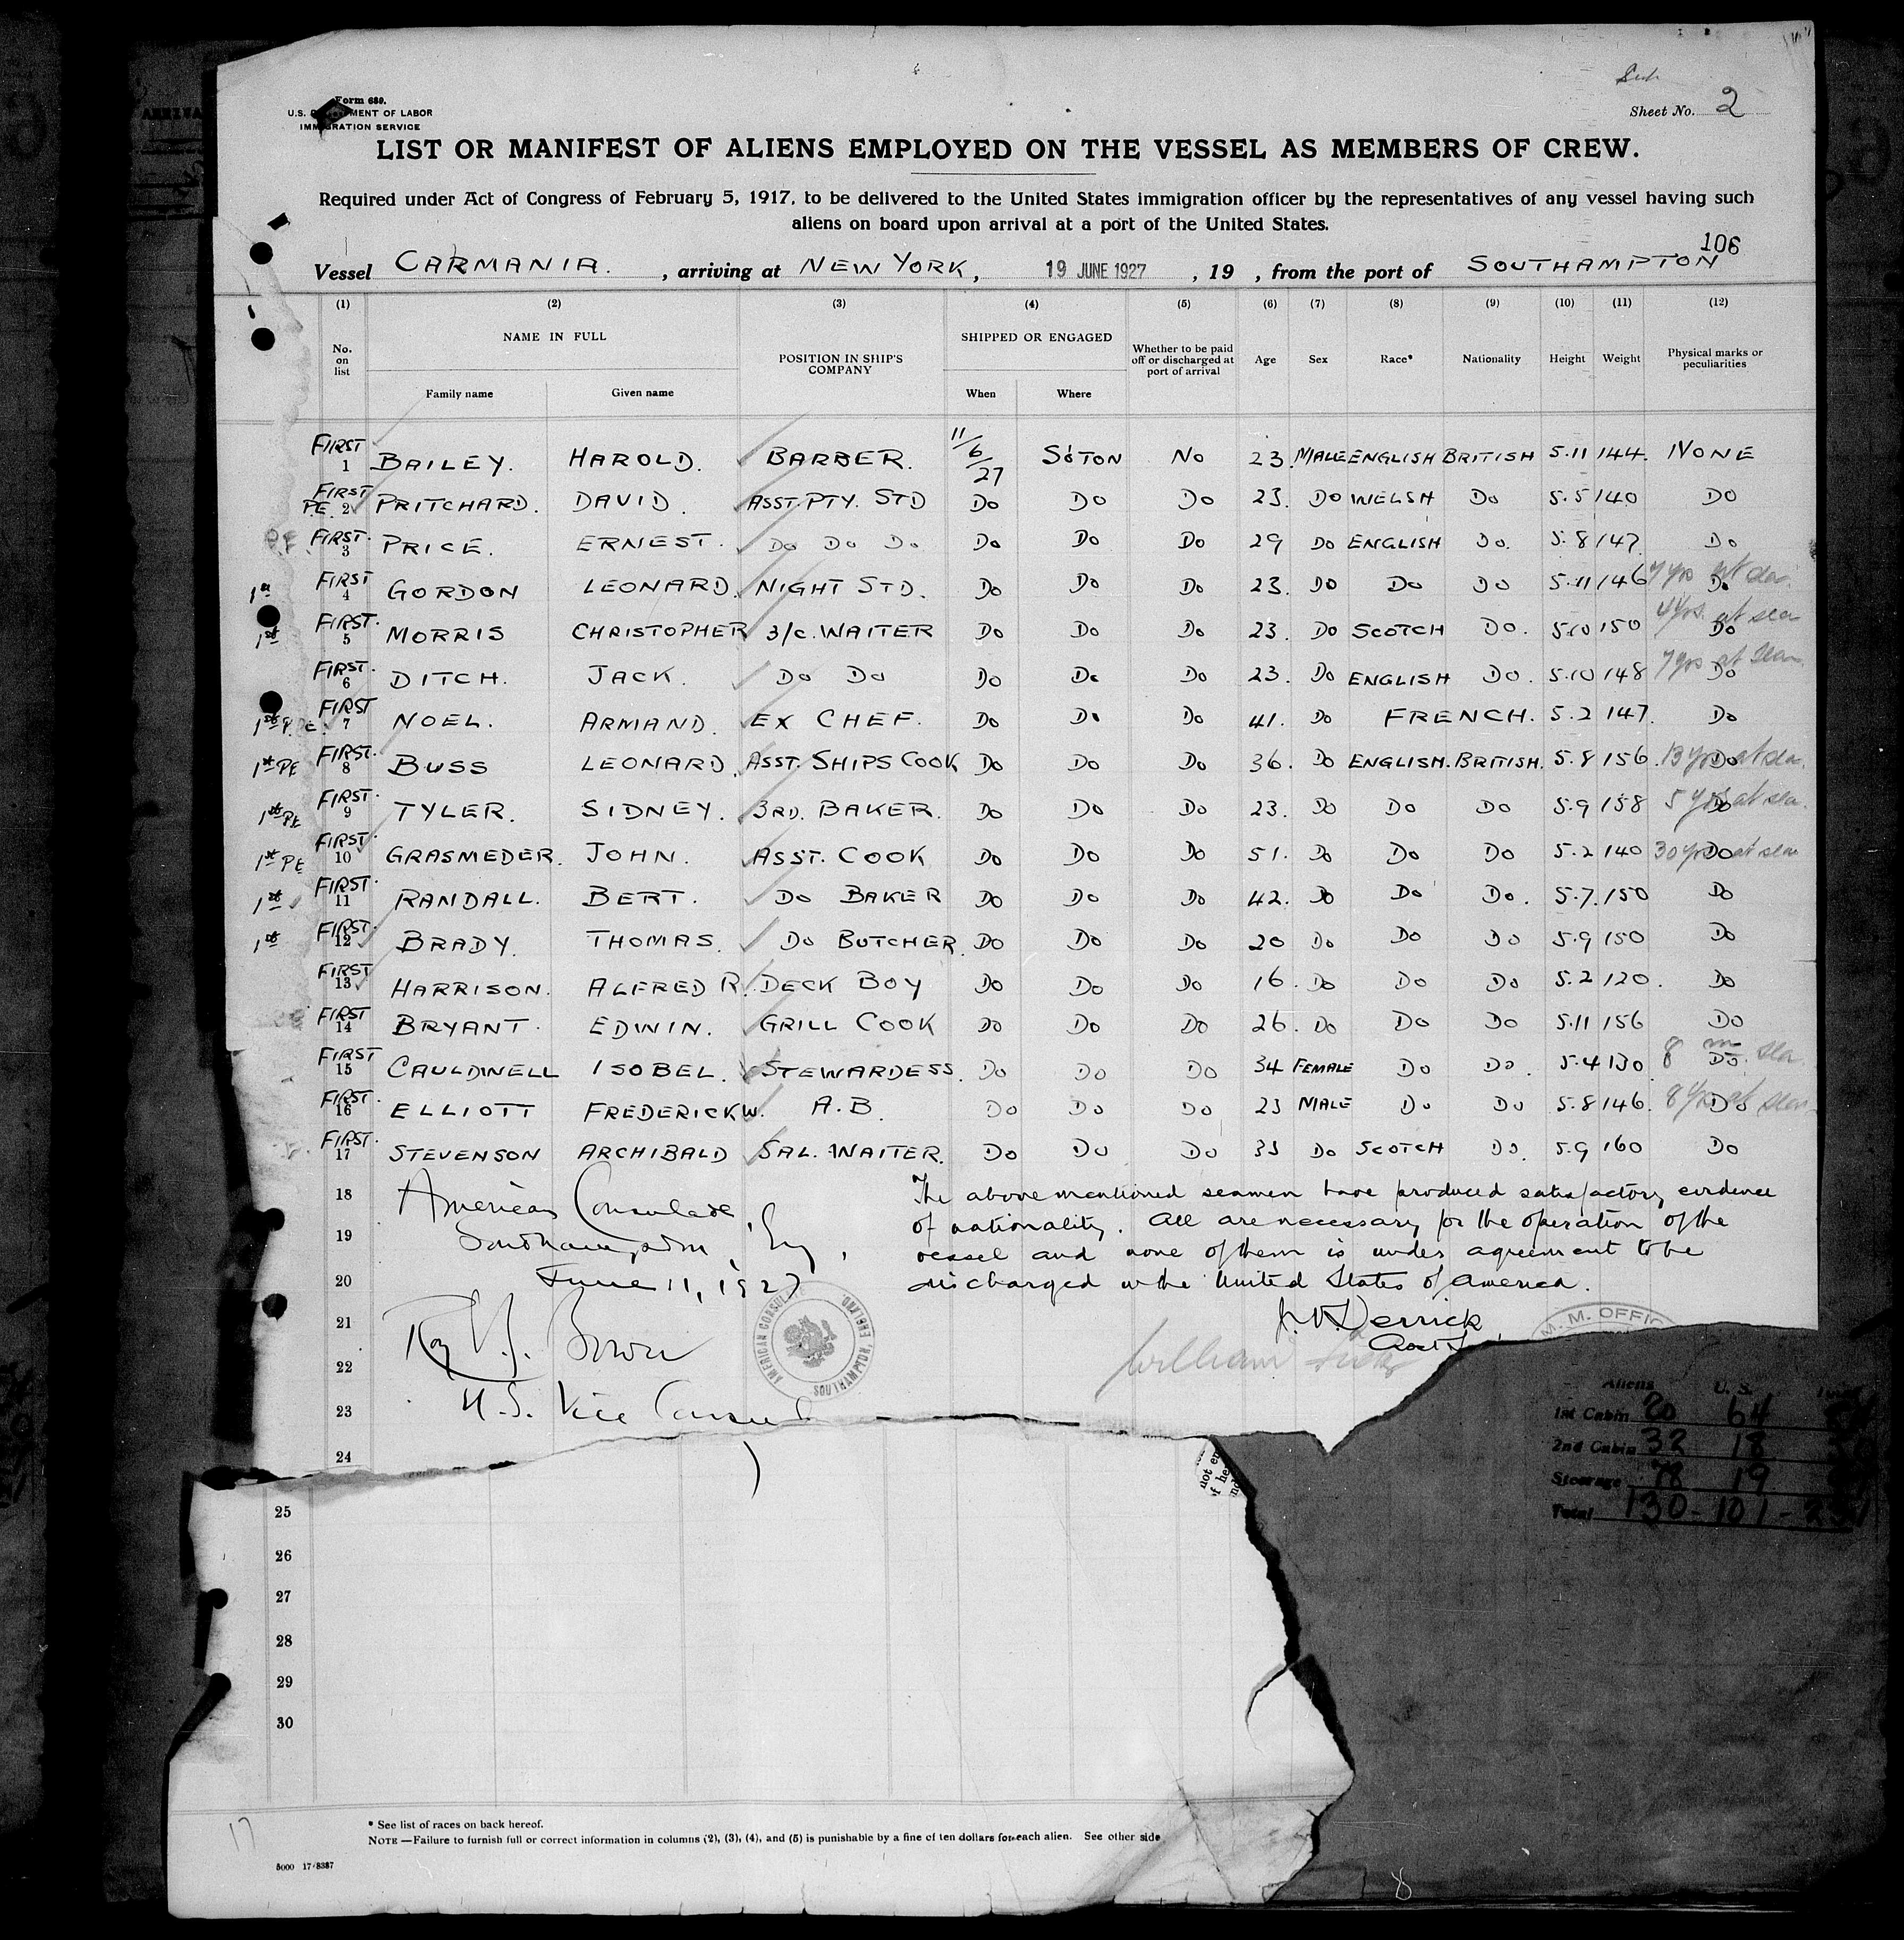 Form 689.
U.S. DEPARTMENT OF LABOR
IMMIGRATION SERVICE
Sheet No. 2
LIST OR MANIFEST OF ALIENS EMPLOYED ON THE VESSEL AS MEMBERS OF CREW.
Required under Act of Congress of February 5, 1917, to be delivered to the United States immigration officer by the representatives of any vessel having such
aliens on board upon arrival at a port of the United States.
106
Vessel CARMANIA. , arriving at NEW YORK, 19 JUNE 1927 , 19 , from the port of SOUTHAMPTON
(1) (2) (3) (4) (5) (6) (7) (8) (9) (10) (11) (12)
No. on list NAME IN FULL POSITION IN SHIP'S COMPANY SHIPPED OR ENGAGED Whether to be paid off or discharged at port of arrival Age Sex Race* Nationality Height Weight Physical marks or peculiarities
Family name Given name When Where
FIRST 1 BAILEY. HAROLD. BARBER. 11/6/27 S'OTON NO 23. MALE ENGLISH BRITISH 5.11 144. NONE
FIRST PE. 2 PRITCHARD. DAVID. ASST. PTY. STD DO DO DO 23. DO WELSH DO 5.5 140 DO
PE. FIRST. 3 PRICE. ERNEST. DO DO DO DO DO DO 29 DO ENGLISH DO. 5.8 147 DO
1st FIRST 4 GORDON LEONARD. NIGHT STD. DO DO DO 23. DO DO DO 5.11 146 DO 7 yrs at sea.
1st FIRST. 5 MORRIS CHRISTOPHER 3/C. WAITER DO DO DO 23. DO SCOTCH DO. 5.10 150 DO 4 yrs. at sea
FIRST. 6 DITCH. JACK. DO DO DO DO DO 23. DO ENGLISH DO. 5.10 148 DO 7 yrs at sea
1st P.E. FIRST 7 NOEL. ARMAND. EX CHEF. DO DO DO 41. DO FRENCH. 5.2 147. DO
1st PE FIRST. 8 BUSS LEONARD. ASST. SHIPS COOK DO DO DO 36. DO ENGLISH. BRITISH. 5.8 156. DO 13 yrs at sea.
1st PE FIRST. 9 TYLER. SIDNEY. 3RD. BAKER. DO DO DO 23. DO DO DO 5.9 158 DO 5 yrs at sea.
1st PE FIRST. 10 GRASMEDER. JOHN. ASST. COOK DO DO DO 51. DO DO DO 5.2 140 DO 30 yrs at sea
1st FIRST. 11 RANDALL. BERT. DO BAKER DO DO DO 42. DO DO DO. 5.7. 150 DO
1st FIRST. 12 BRADY. THOMAS. DO BUTCHER. DO DO DO 20 DO DO DO 5.9 150 DO
FIRST 13 HARRISON. ALFRED R. DECK BOY DO DO DO 16. DO DO DO 5.2 120. DO
FIRST 14 BRYANT. EDWIN. GRILL COOK DO DO DO 26. DO DO DO 5.11 156 DO
FIRST 15 CAULDWELL ISOBEL. STEWARDESS. DO DO DO 34 FEMALE DO DO. 5.4 130 DO 8 m sea
FIRST. 16 ELLIOTT FREDERICK W. A.B. DO DO DO 23 MALE DO DO 5.8 146. DO 8 yrs at sea
FIRST. 17 STEVENSON ARCHIBALD SAL. WAITER. DO DO DO 33 DO SCOTCH DO. 5.9 160 DO
18 American Consulate The above mentioned seamen have produced satisfactory evidence
19 Southampton, Eng, of nationality. All are necessary for the operation of the
vessel and none of them is under agreement to be
20 June 11, 1927 discharged in the United States of America.
21 Roy Bower Derrick
AMERICAN CONSULATE SOUTHAMPTON, ENGLAND.
M. M. OFFIC
22 William
23 U.S. Vice Consul
24
not en
of he
Aliens U.S.
1st Cabin 20 64
2nd Cabin 32 18
Steerage 78 19
Total 130 - 101 - 231
25
26
27
28
29
30
17
* See list of races on back hereof.
NOTE —Failure to furnish full or correct information in columns (2), (3), (4), and (5) is punishable by a fine of ten dollars for each alien. See other side
5000 17-8387
8